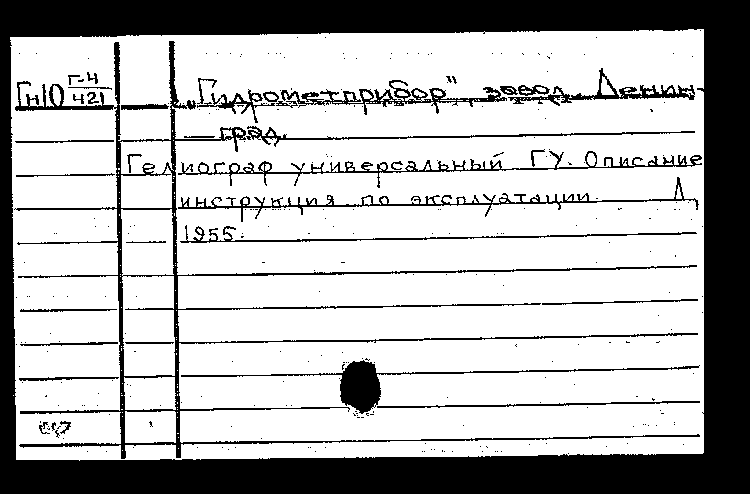 Гн10 Г-4
421
„Гидрометприбор", завод. Ленин-
град.
Гелиограф универсальный ГУ. Описание
инструкция по эксплуатации. Л,
1955.